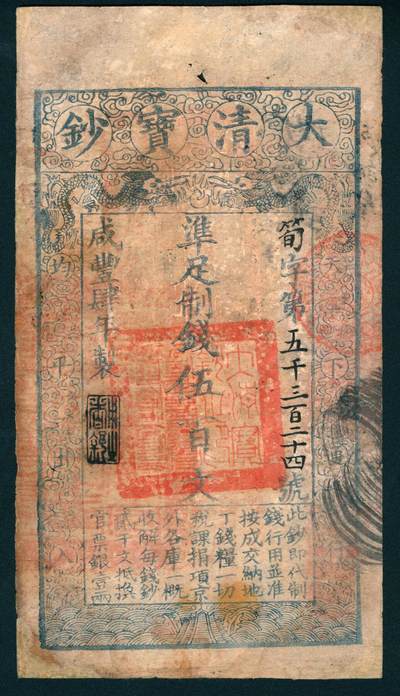 大清寶鈔
天下通行
均平出入
荀字第五千三百二十四號
準足制錢伍百文
咸豐肆年製
此鈔即代制
錢行用並准
按成交納地
丁錢糧一切
稅課捐項京
外各庫一概
收解每錢鈔
貳千文抵換
官票銀壹兩